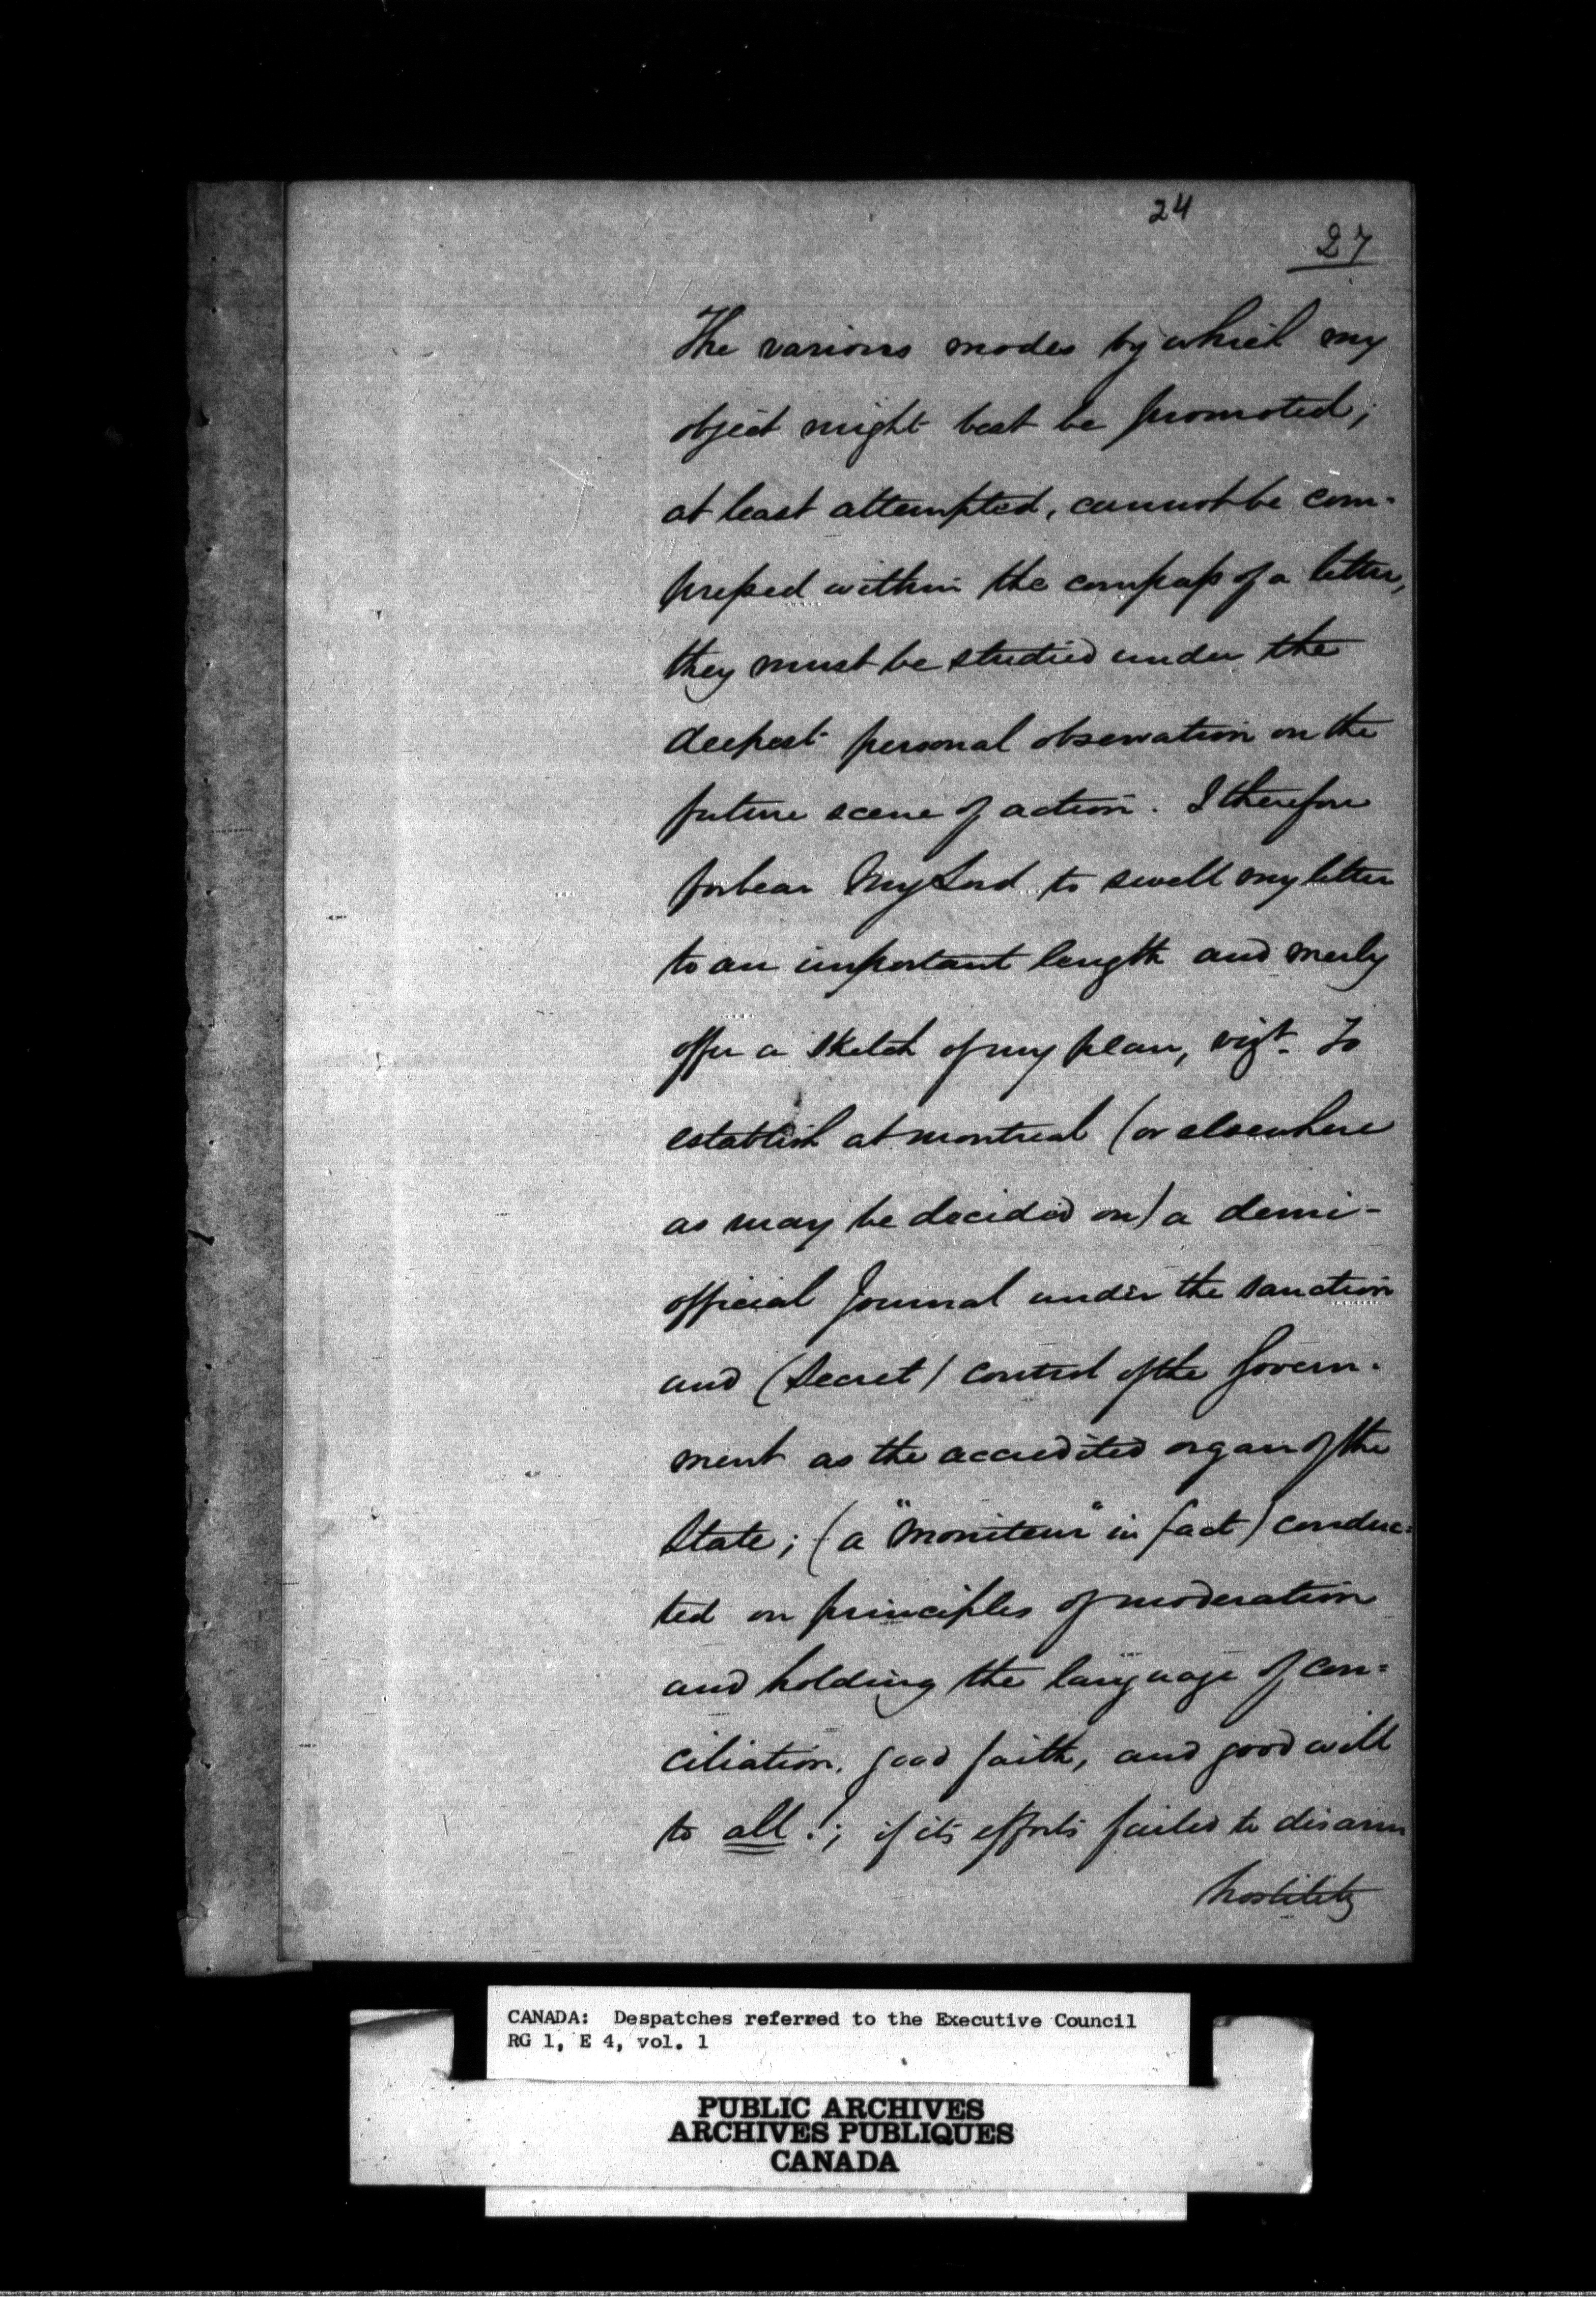 24
27
The various modes by which my
object might best be promoted;
at least attempted, cannot be com-
pressed within the compass of a letter,
they must be studied under the
deepest personal observation on the
future scene of action. I therefore
forbear My Lord to swell my letter
to an important length and merly
offer a sketch of my plan, vizt. To
establish at montreal (or elsewhere
as may be decided on) a demi-
official Journal under the sanction
and (secret) control of the Govern-
ment as the accredited organ of the
State; (a "Moniteur" in fact) conduc-
ted on principles of moderation
and holding the language of con-
ciliation, good faith, and good will
to all!; if its efforts failed to disarm
hostility
CANADA: Despatches referred to the Executive Council
RG 1, E 4, vol. 1
PUBLIC ARCHIVES
ARCHIVES PUBLIQUES
CANADA